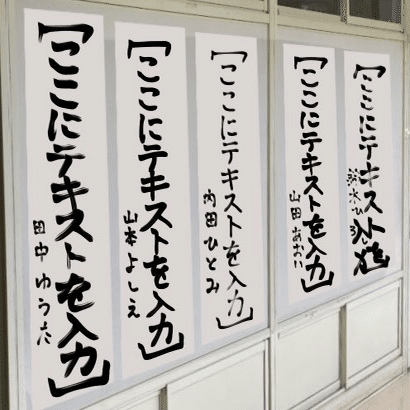 [ここにテキストを入力]
清水 ひろ
[ここにテキストを入力]
山田 あおい
[ここにテキストを入力]
内田 ひとみ
[ここにテキストを入力]
山本 よしえ
[ここにテキストを入力]
田中 ゆうた